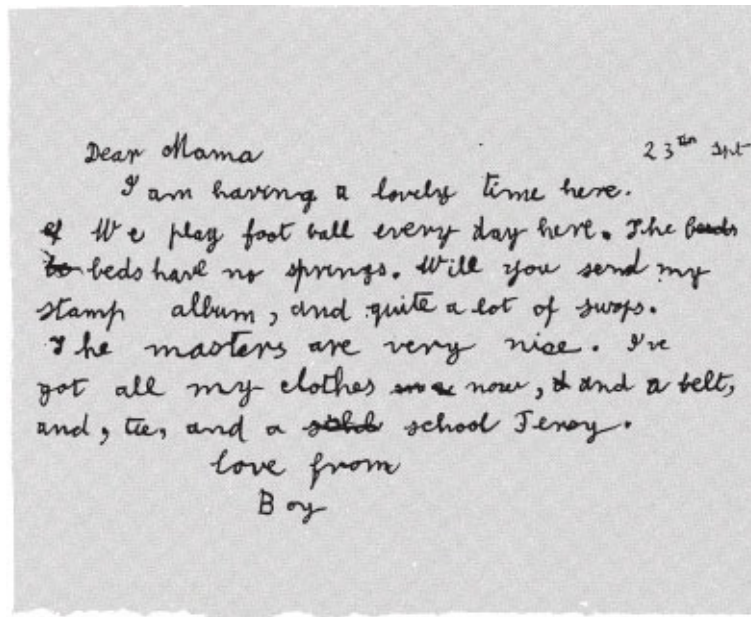 Dear Mama 23th Spt
I am having a lovely time here.
We play foot ball every day here. The beds
beds have no springs. Will you send my
stamp album, and quite a lot of swops.
The masters are very nice. I've
got all my clothes now, and a belt,
and, tie, and a school Jersy.
love from
Boy